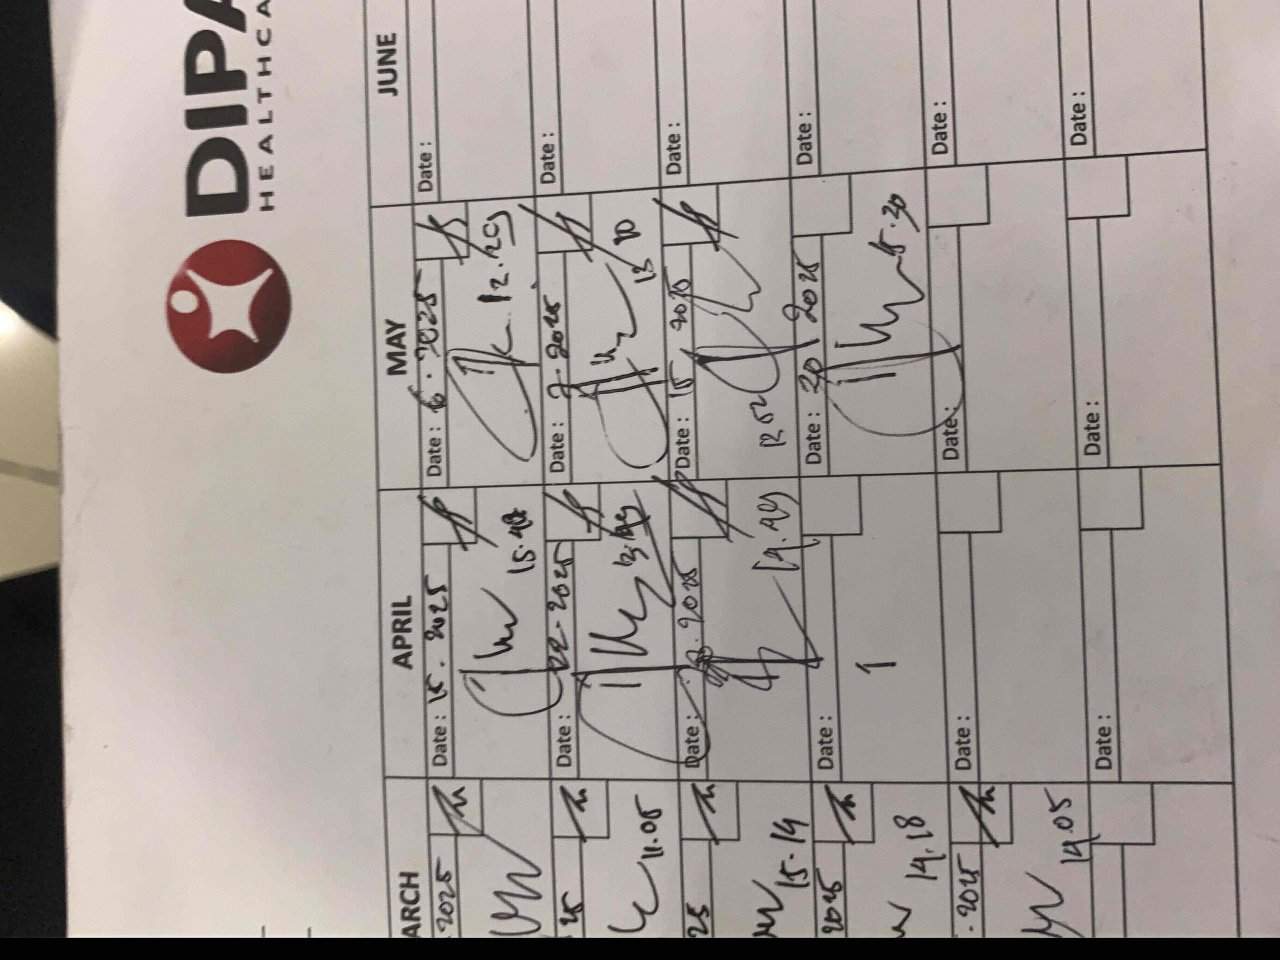 DIPA
HEALTHCA
ARCH
APRIL
MAY
JUNE
2025
Date : 15 . 2025
Date : 6 . 2025
Date :
15.42
12.29
25
Date : 22-2025
Date : 7-2025
Date :
11.05
13.49
13
25
Date : 2025
Date : 15 2025
Date :
15.14
14.49
12 52
2025
Date :
Date : 20 2025
Date :
14.18
1
15.30
. 2025
Date :
Date :
Date :
14.05
Date :
Date :
Date :